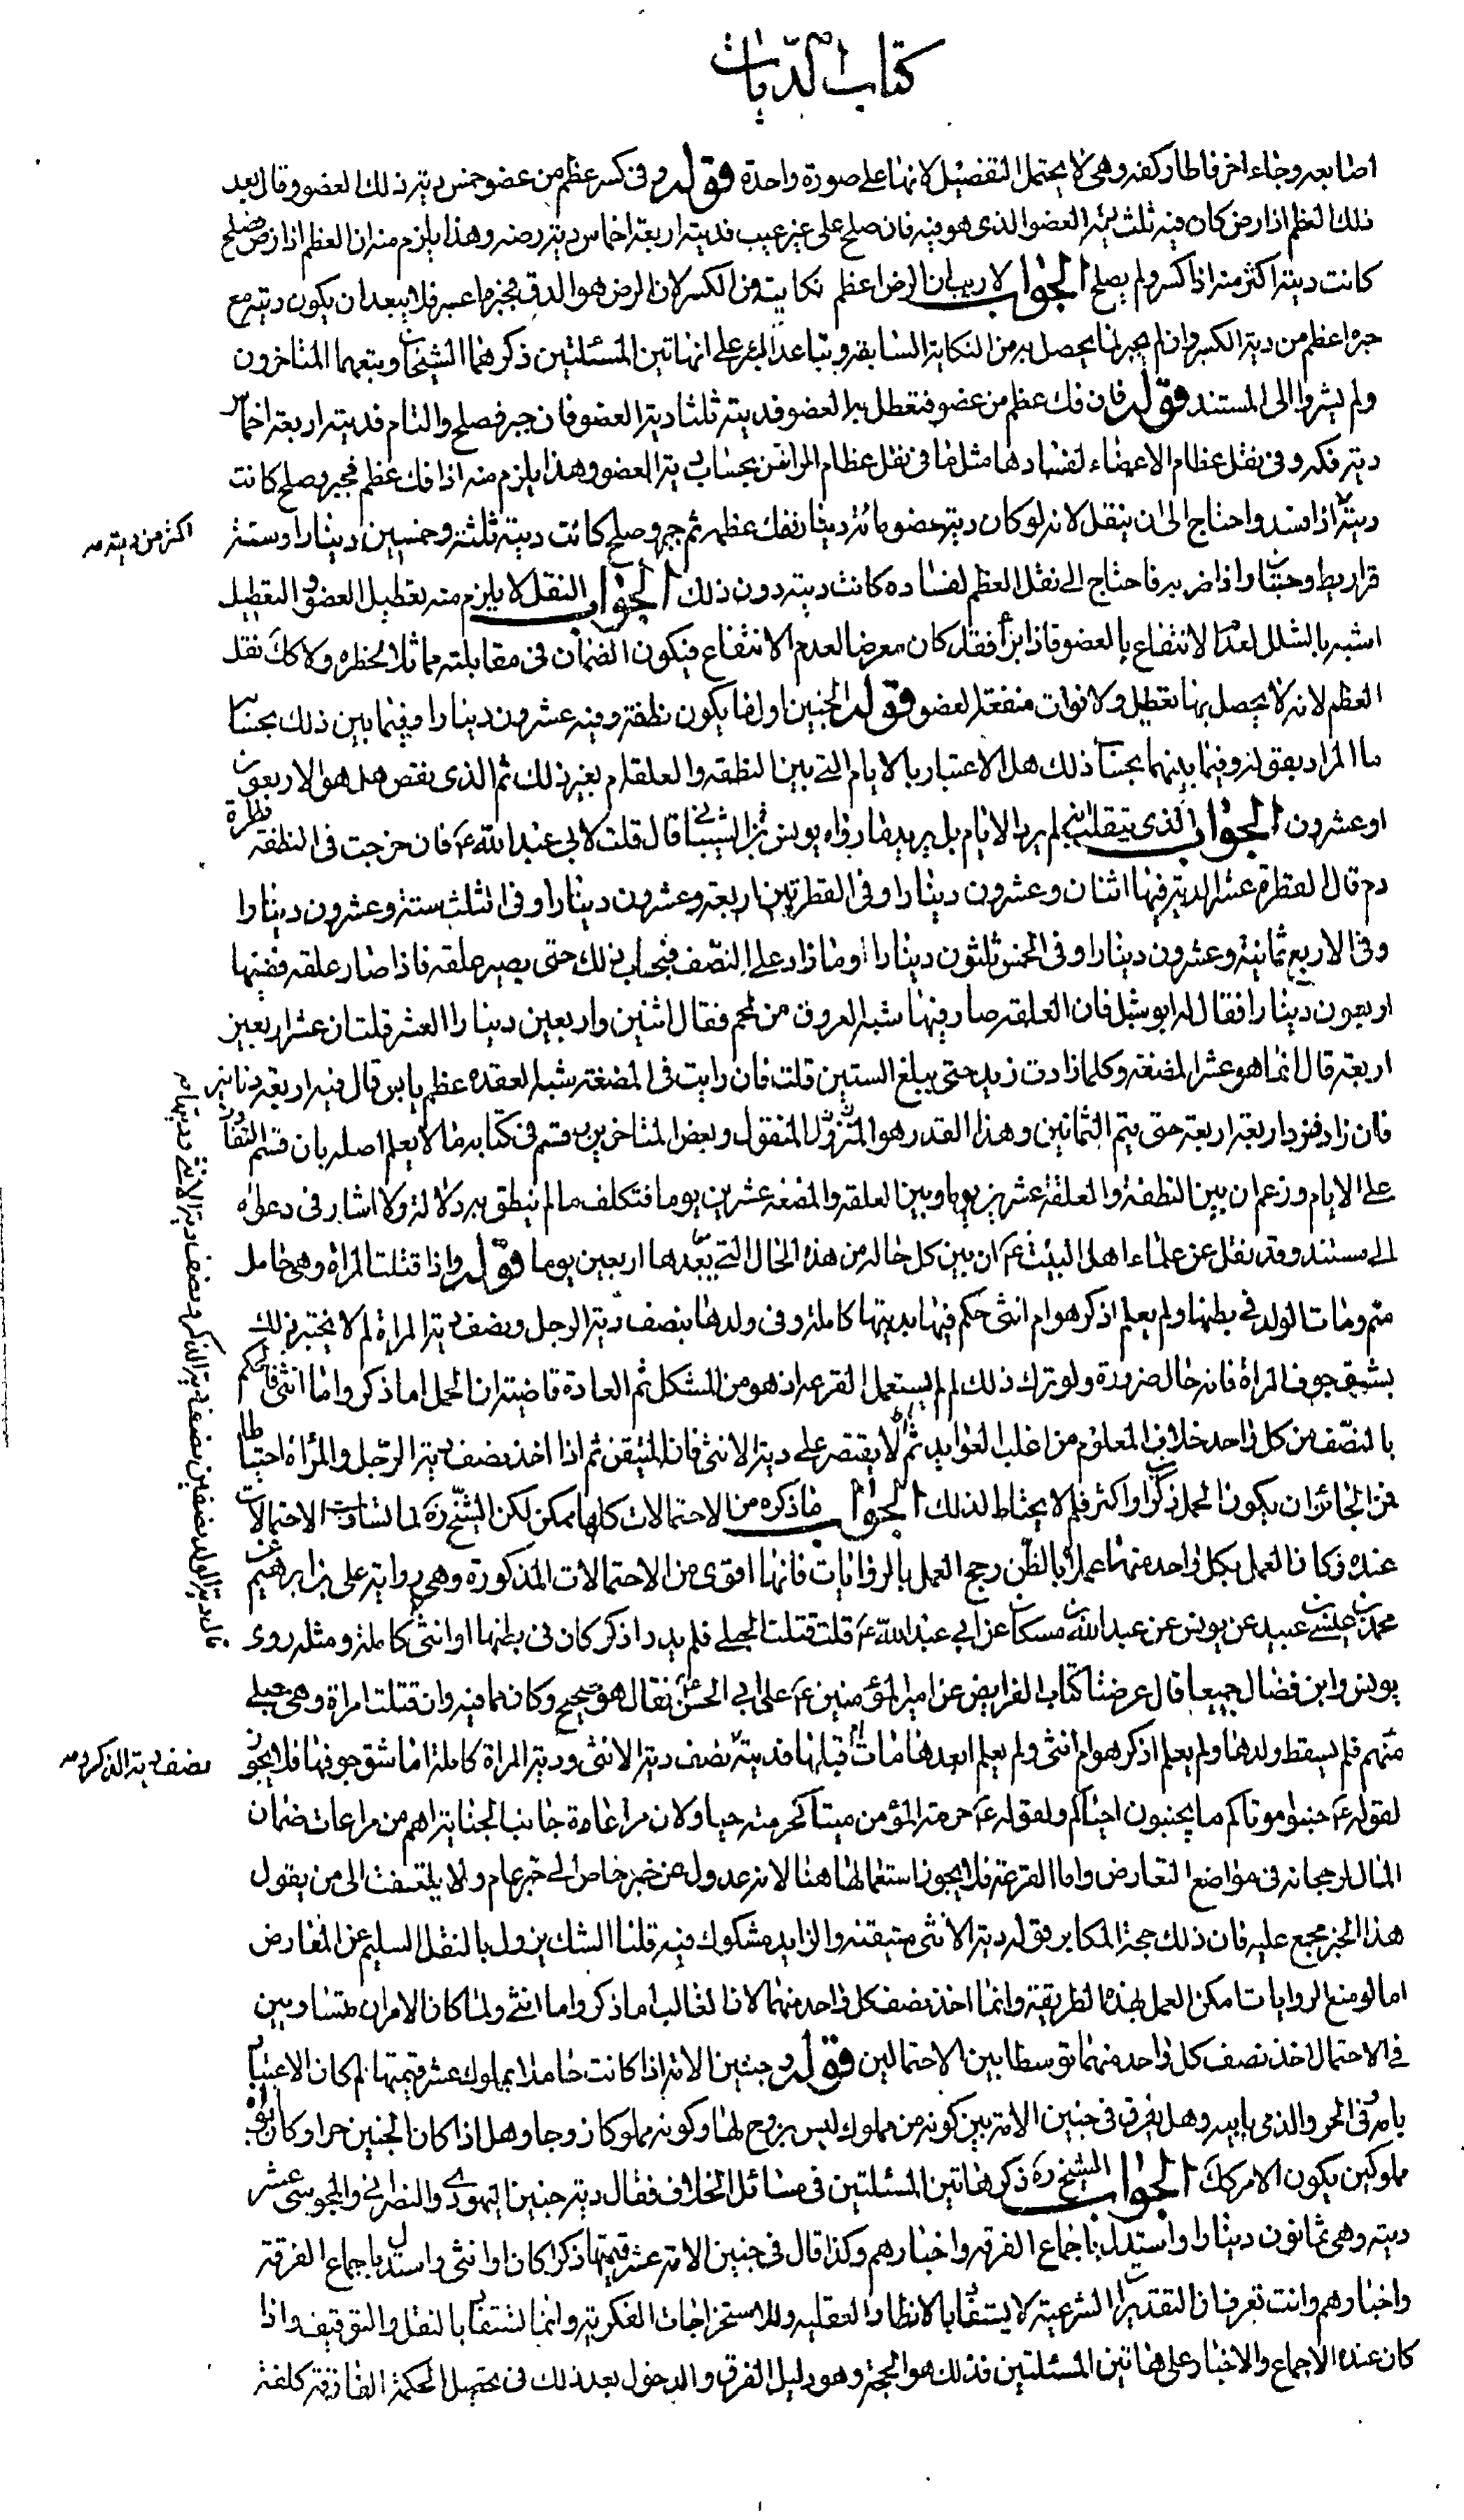 كتاب الديات
اصابعه وجاء اخر فاطار كفه وهى لا يحتمل التفضيل لانها على صورة واحدة قوله وفى كسر عظم من عضو خمس دية ذلك العضو وقال بعد
ذلك العظم اذا رض كان فيه ثلث دية العضو الذى هو فيه فان صلح على غير عيب فديته اربعة اخماس دية رضه وهذا يلزم منه ان العظم اذا رض فصلح
كانت ديته اكثر منه اذا كسر ولم يصلح الجواب لا ريب ان الرض اعظم نكاية من الكسر لان الرض هو الدق فجبره اعسر فلا يبعد ان يكون ديته مع
جبره اعظم من دية الكسر وان لم يجبر لما يحصل به من النكاية السابقة وتباعد البرء على ان هاتين المسئلتين ذكرهما الشيخان وتبعهما المتاخرون
ولم يشيروا الى المستند قوله فان فك عظم من عضو فتعطل به العضو فديته ثلثا دية العضو فان جبر فصلح والتام فديته اربعة اخماس
دية فكه وفى نقل عظام الاعضاء لفسادها مثل ما فى نقل عظام الراس بحساب دية العضو وهذا يلزم منه اذا فك عظم فجبر وصلح كانت
ديته اذا فسد واحتاج الى ان ينقل لانه لو كان دية عضو مائة دينار ففك عظمه ثم جبر وصلح كانت ديته ثلثة وخمسين دينارا وستة
اكثر من ديته
قراريط وحبتان واذا ضربه فاحتاج الى نقل العظم لفساده كانت ديته دون ذلك الجواب النقل لا يلزم منه تعطيل العضو والتعطيل
اشبه بالشلل لعدم الانتفاع بالعضو فاذا برأ فقد كان معرضا لعدم الانتفاع فيكون الضمان فى مقابلته مماثلا لخطره ولا كك نقل
العظم لانه لا يحصل بها تعطيل ولا فوات منفعة العضو قوله الجنين اول ما يكون نطفة وفيه عشرون دينارا وفيما بين ذلك بحساب
ما المراد بقوله وفيما بينهما بحساب ذلك هل الاعتبار بالايام التى بين النطفة والعلقة ام بغير ذلك ثم الذى ينقص هل هو الاربعون
او عشرون الجواب الذى يتقلب انه لم يرد الايام بل يريد ما رواه يونس بن الشيبانى قال قلت لابى عبد الله ع فان خرجت فى النطفة قطرة
دم قال القطرة عشر الدية فيها اثنان وعشرون دينارا وفى القطرتين اربعة وعشرون دينارا وفى الثلث ستة وعشرون دينارا
وفى الاربع ثمانية وعشرون دينارا وفى الخمس ثلثون دينارا وما زاد على النصف فبحساب ذلك حتى يصير علقة فاذا صار علقة ففيها
اربعون دينارا فقال له ابو شبل فان العلقة صار فيها شبه العروق من لحم فقال اثنين واربعين دينارا العشر قلت ان عشر اربعين
اربعة قال انما هو عشر المضغة وكلما زادت زيد حتى يبلغ الستين قلت فان رايت فى المضغة شبه العقدة عظم يابس قال فيه اربعة دنانير
فان زاد فزد اربعة اربعة حتى يتم الثمانين وهذا القدر هو المنقول وبعض المتاخرين قسم فى كتابه ما لا يعلم اصله بان قسم التفاوت
على الايام وزعم ان بين النطفة والعلقة عشرين يوما وبين العلقة والمضغة عشرين يوما فتكلف ما لم ينطق به دلالة ولا اشار فى دعواه
الى مستند وقد نقل عن علماء اهل البيت ع ان بين كل حالة من هذه الحال التى يعدها اربعين يوما قوله واذا قتلت المراة وهى حامل
متم ومات الولد فى بطنها ولم يعلم اذكر هو ام انثى حكم فيها بديتها كاملة وفى ولدها بنصف دية الرجل ونصف دية المراة لم لا يختبر ذلك
بشق جوف المراة فانه حال ضرورة ولو ترك ذلك لم لم يستعمل القرعة اذ هو من المشكل ثم العادة قاضية ان الحمل اما ذكر واما انثى فالحكم
بالنصف من كل واحد خلاف المعلوم من اغلب العوايد ثم الا يقتصر على دية الانثى فانه المتيقن ثم اذا اخذ نصف دية الرجل والمراة احتياطا
فمن الجائز ان يكون الحمل ذكرا واكثر فلم لا يحتاط لذلك الجواب ما ذكره من الاحتمالات كلها ممكن لكن الشيخ ره لما تساوت الاحتمالات
عنده فكان العمل بكل واحد منهما عملا بالظن رجح العمل بالروايات فانها اقوى من الاحتمالات المذكورة وهى رواية على بن ابرهيم عن
محمد بن عيسى بن عبيد عن يونس عن عبد الله بن مسكان عن ابى عبد الله ع قلت قتلت الحبلى فلم يدر اذكر كان فى بطنها او انثى كاملة ومثله روى
قال دية الولد نصفين نصف دية الذكر ونصف دية الانثى وديتها
يونس وابن فضال جميعا قال عرضنا كتاب الفرايض عن امير المؤمنين ع على ابى الحسن ع فقال هو صحيح وكان مما فيه وان قتلت امراة وهى حبلى
متم فلم يسقط ولدها ولم يعلم اذكر هو ام انثى ولم يعلم ابعدها مات ام قبلها فديته نصف دية الانثى ودية المراة كاملة اما شق جوفها فلا يجوز
نصف دية الذكر و
لقوله ع جنبوا موتاكم ما يجنبون احياكم ولقوله ع حرمة المؤمن ميتا كحرمته حيا ولان مراعاة جانب الجناية اهم من مراعات ضمان
المال لرجحانه فى مواضع التعارض واما القرعة فلا يجوز استعمالها هنا لانه عدول عن خبر خاص الى خبر عام ولا يلتفت الى من يقول
هذا الخبر مجمع عليه فان ذلك حجة المكابر قوله دية الانثى متيقنة والزايد مشكوك فيه قلنا الشك يزول بالنقل السليم عن المعارض
اما لو منع الروايات امكن العمل بهذه الطريقة وانما اخذ نصف كل واحد منهما لان الغالب اما ذكر واما انثى ولما كان الامران متساويين
فى الاحتمال اخذ نصف كل واحد منهما توسطا بين الاحتمالين قوله وجنين الامة اذا كانت حاملا بمملوك عشر قيمتها لم كان الاعتبار
بامه وفى الحر والذمى بابيه وهل يفرق فى جنين الامة بين كونه من مملوك ليس بزوج لها وكونه مملوكا زوجا وهل اذا كان الجنين حرا وكان ابواه
مملوكين يكون الامر كك الجواب الشيخ ره ذكر هاتين المسئلتين فى مسائل الخلاف فقال دية جنين اليهودى والنصرانى والمجوسى عشر
ديته وهى ثمانون دينارا واستدل باجماع الفرقة واخبارهم وكذا قال فى جنين الامة عشر قيمتها ذكرا كان او انثى واستدل باجماع الفرقة
واخبارهم وانت تعرف ان التقديرات الشرعية لا يستفاد بالانظار العقلية والاستخراجات الفكرية وانما تستفاد بالنقل والتوقيف واذا
كان عنده الاجماع والاخبار على هاتين المسئلتين فذلك هو الحجة وهو دليل الفرق والدخول بعد ذلك فى تحصيل الحكمة الفارقة كلفة